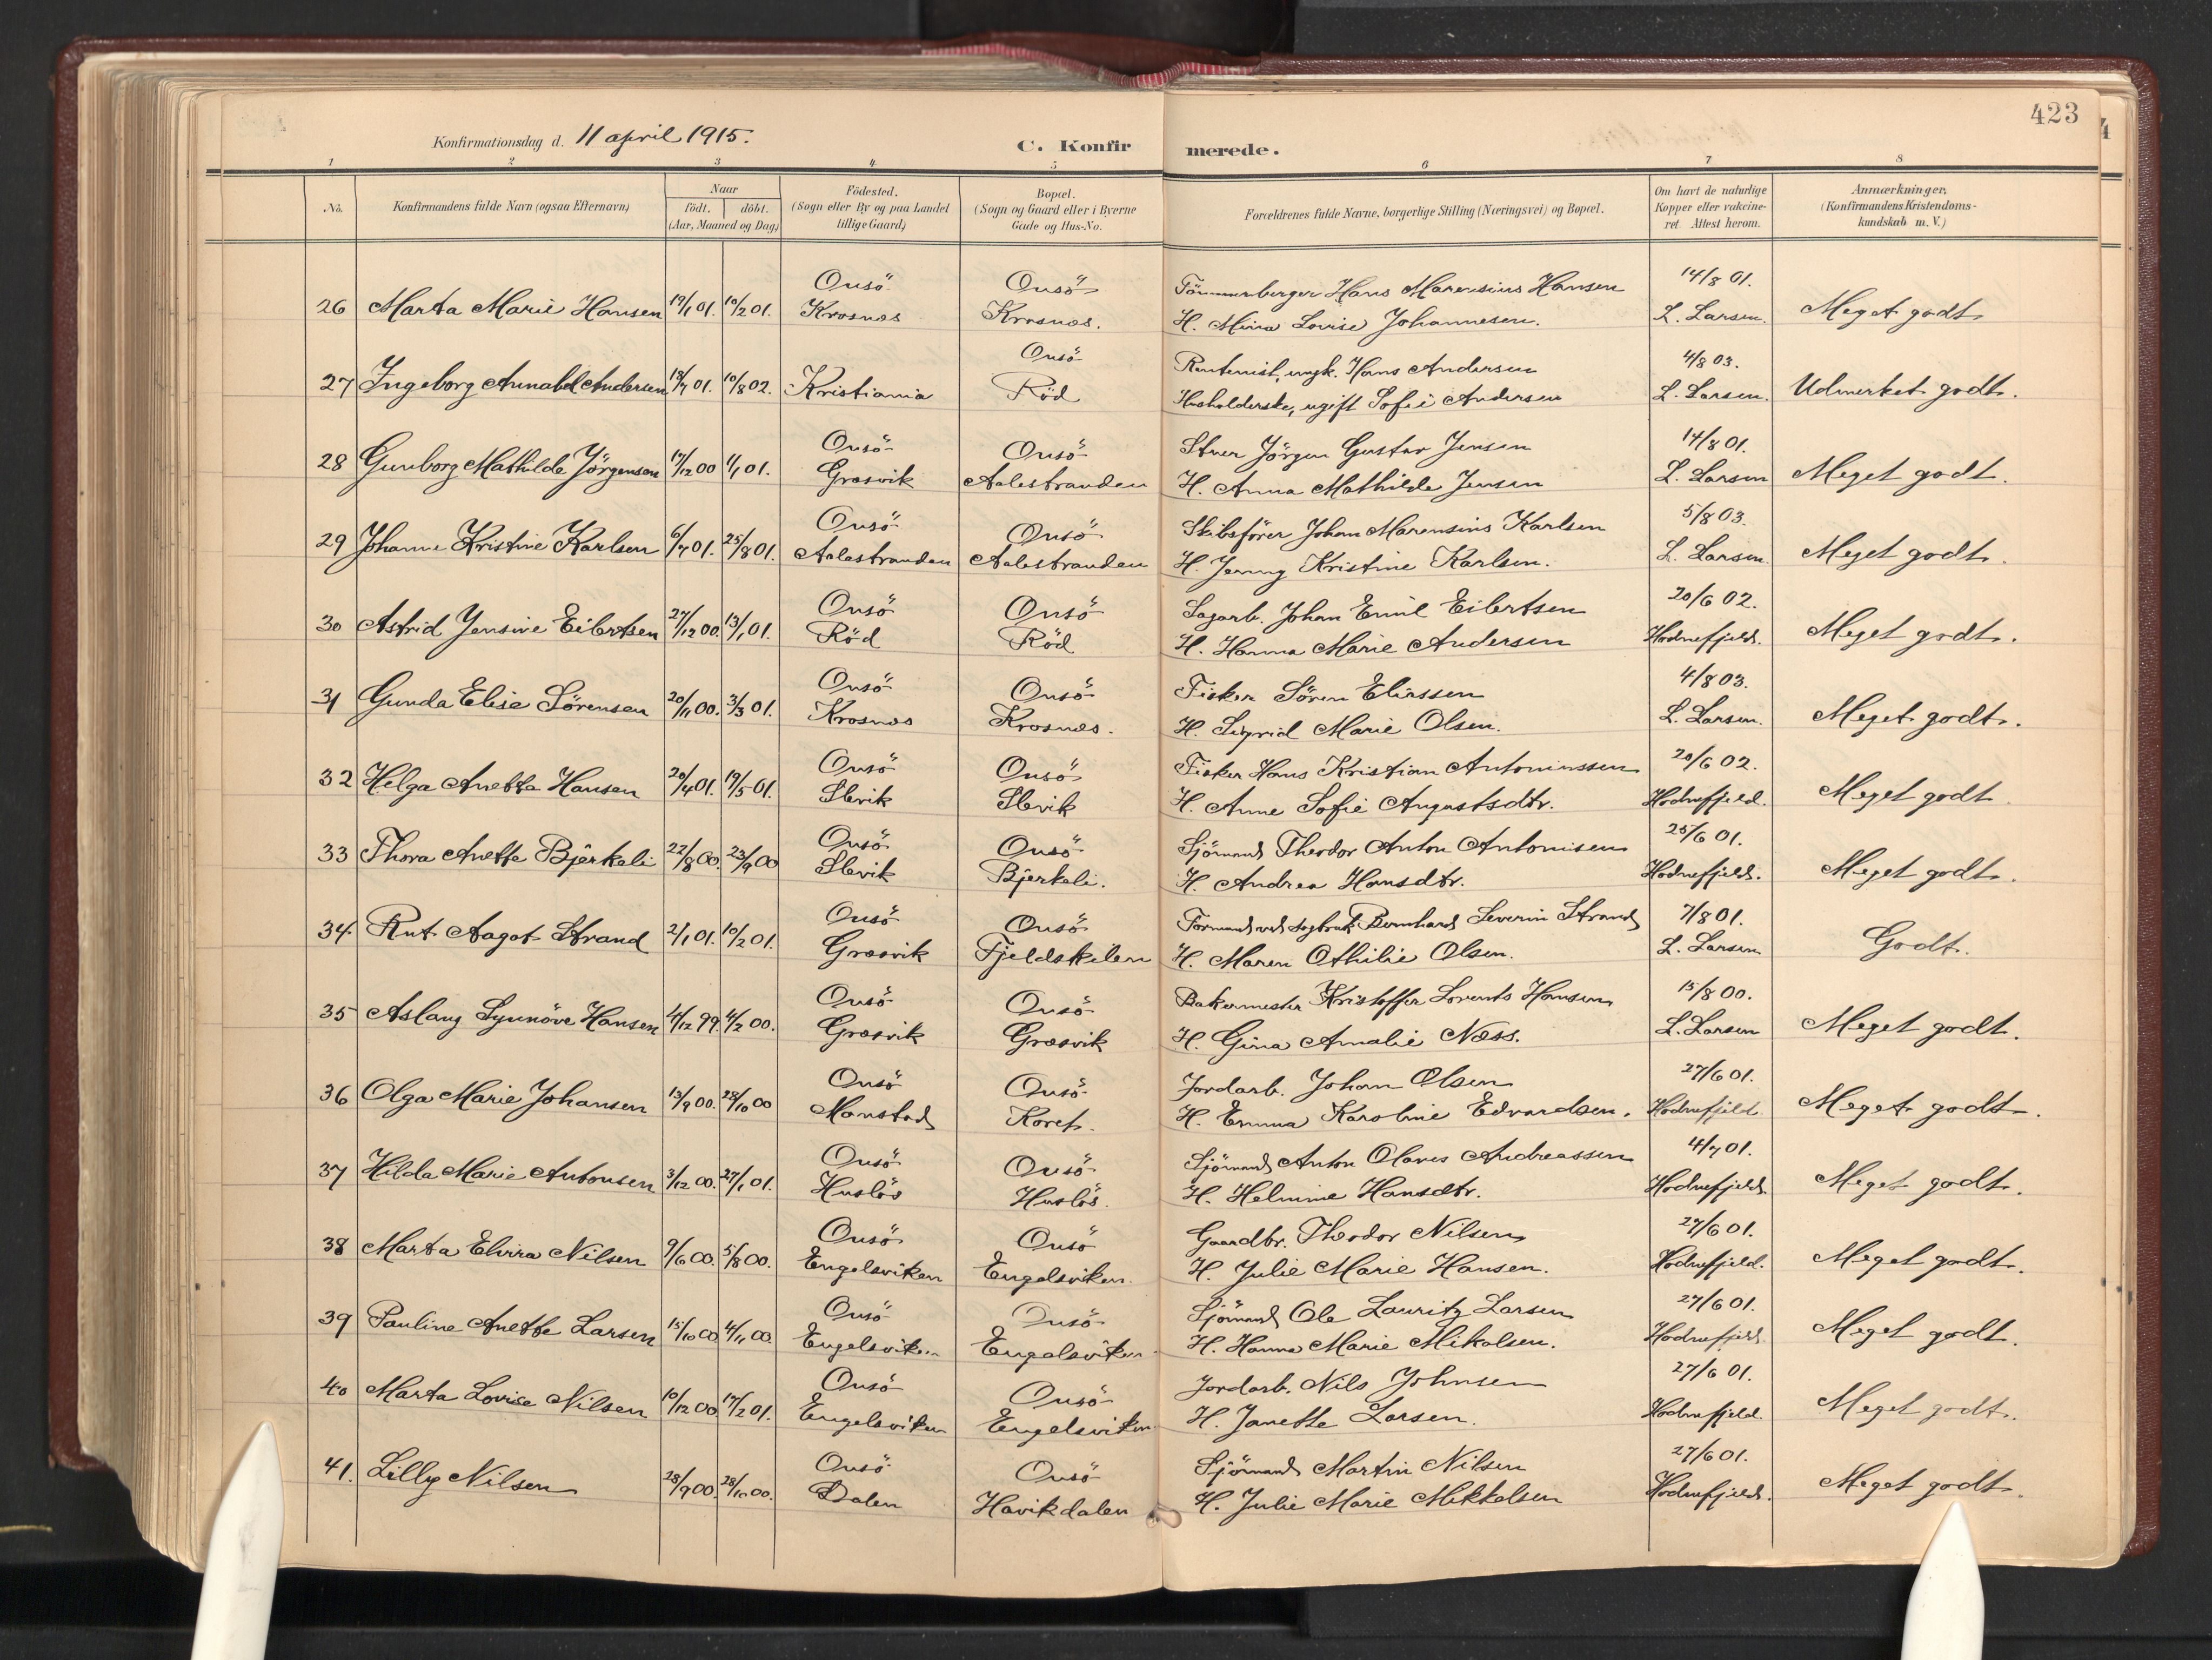 423
Konfirmationsdag d. 11 april 1915.
C. Konfirmerede.
1 2 3 4 5 6 7 8
No.
Konfirmandens fulde Navn (ogsaa Efternavn)
Naar
født. døbt.
(Aar, Maaned og Dag)
Födested.
(Sogn eller By og paa Landet
tillige Gaard)
Bopæl.
(Sogn og Gaard eller i Byerne
Gade og Hus-No.
Forældrenes fulde Navne, borgerlige Stilling (Næringsvei) og Bopæl.
Om havt de naturlige
Kopper eller vakcine-
ret. Attest herom.
Anmærkninger.
(Konfirmandens Kristendoms-
kundskab m. V.)
Onsö Onsö Tömmerberger Hans Marensius Hansen 14/8 01.
26 Marta Marie Hansen 19/1 01. 10/2 01. Krosnæs Krosnæs. H. Mina Lovise Johannesen. L. Larsen. Meget godt
Onsö Rentenist, ungk. Hans Andersen 4/8 03.
27 Ingeborg Annabel Andersen 18/7 01. 10/8 02. Kristiania Röd Husholderske, ugift Sofie Andersen L. Larsen. Udmerket godt.
Onsö Onsö Stuer Jörgen Gustav Jensen 14/8 01.
28 Gunborg Mathilde Jörgensen 17/12 00 1/1 01. Græsvik Aalestranden H. Anna Mathilde Jensen L. Larsen Meget godt.
Onsö Onsö Skibsförer Johan Marensius Karlsen 5/8 03.
29 Johanne Kristine Karlsen 6/7 01. 25/8 01. Aalestranden Aalestranden H. Jenny Kristine Karlsen. L. Larsen. Meget godt.
Onsö Onsö Sagarb. Johan Emil Eilertsen 20/6 02.
30 Astrid Jensine Eilertsen 27/12 00. 13/1 01. Röd Röd H. Hanna Marie Andersen Hodnefjeld. Meget godt.
Onsö Onsö Fisker Sören Eliassen 4/8 03.
31 Gunda Elise Sörensen 20/11 00. 3/3 01. Krosnæs Krosnæs. H. Sigrid Marie Olsen. L. Larsen. Meget godt.
Onsö Onsö Fisker Hans Kristian Antoniussen 20/6 02.
32 Helga Anette Hansen 20/4 01. 19/5 01. Slevik Slevik H. Anne Sofie Augustsdtr. Hodnefjeld. Meget godt
Onsö Onsö Sjömand Theodor Anton Antonisen 25/6 01.
33 Thora Anette Bjerkeli 22/8 00. 23/9 00 Slevik Bjerkeli. H. Andrea Hansdtr. Hodnefjeld. Meget godt.
Onsö Onsö Formand ved sagbruk Bernhard Severin Strand 7/8 01.
34 Rut Aagot Strand 2/1 01. 10/2 01. Græsvik Fjeldskilen H. Maren Othilie Olsen. L. Larsen Godt.
Onsö Onsö Bakermester Kristoffer Lorents Hansen 15/8 00.
35 Aslaug Synnöve Hansen 4/12 99. 4/2 00. Græsvik Græsvik H. Gina Amalie Næss. L. Larsen Meget godt.
Onsö Onsö Jordarb. Johan Olsen 27/6 01.
36 Olga Marie Johansen 13/9 00. 28/10 00 Monstad Koret. H. Emma Karoline Edvardsen. Hodnefjeld Meget godt.
Onsö Onsö Sjömand Anton Olaves Andreassen 4/7 01.
37 Hilda Marie Antonsen 3/12 00. 27/1 01. Huslös Huslös. H. Helmine Hansdtr. Hodnefjeld Meget godt.
Onsö Onsö Gaardbr. Theodor Nilsen 27/6 01.
38 Marta Elvira Nilsen 9/6 00. 5/8 00. Engelsviken Engelsviken. H. Julie Marie Hansen. Hodnefjeld. Meget godt.
Onsö Onsö Sjömand Ole Lauritz Larsen 27/6 01.
39 Pauline Anette Larsen 15/10 00 4/11 00. Engelsviken Engelsviken H. Hanna Marie Mikalsen. Hodnefjeld. Meget godt.
Onsö Onsö Jordarb. Nils Johnsen 27/6 01.
40 Marta Lovise Nilsen 10/12 00 17/2 01. Engelsviken Engelsviken H. Janette Larsen. Hodnefjeld. Meget godt.
Onsö Onsö Sjömand Martin Nilsen 27/6 01.
41. Lilly Nilsen 28/9 00. 28/10 00. Dalen Havikdalen H. Julie Marie Mikkelsen Hodnefjeld. Meget godt.